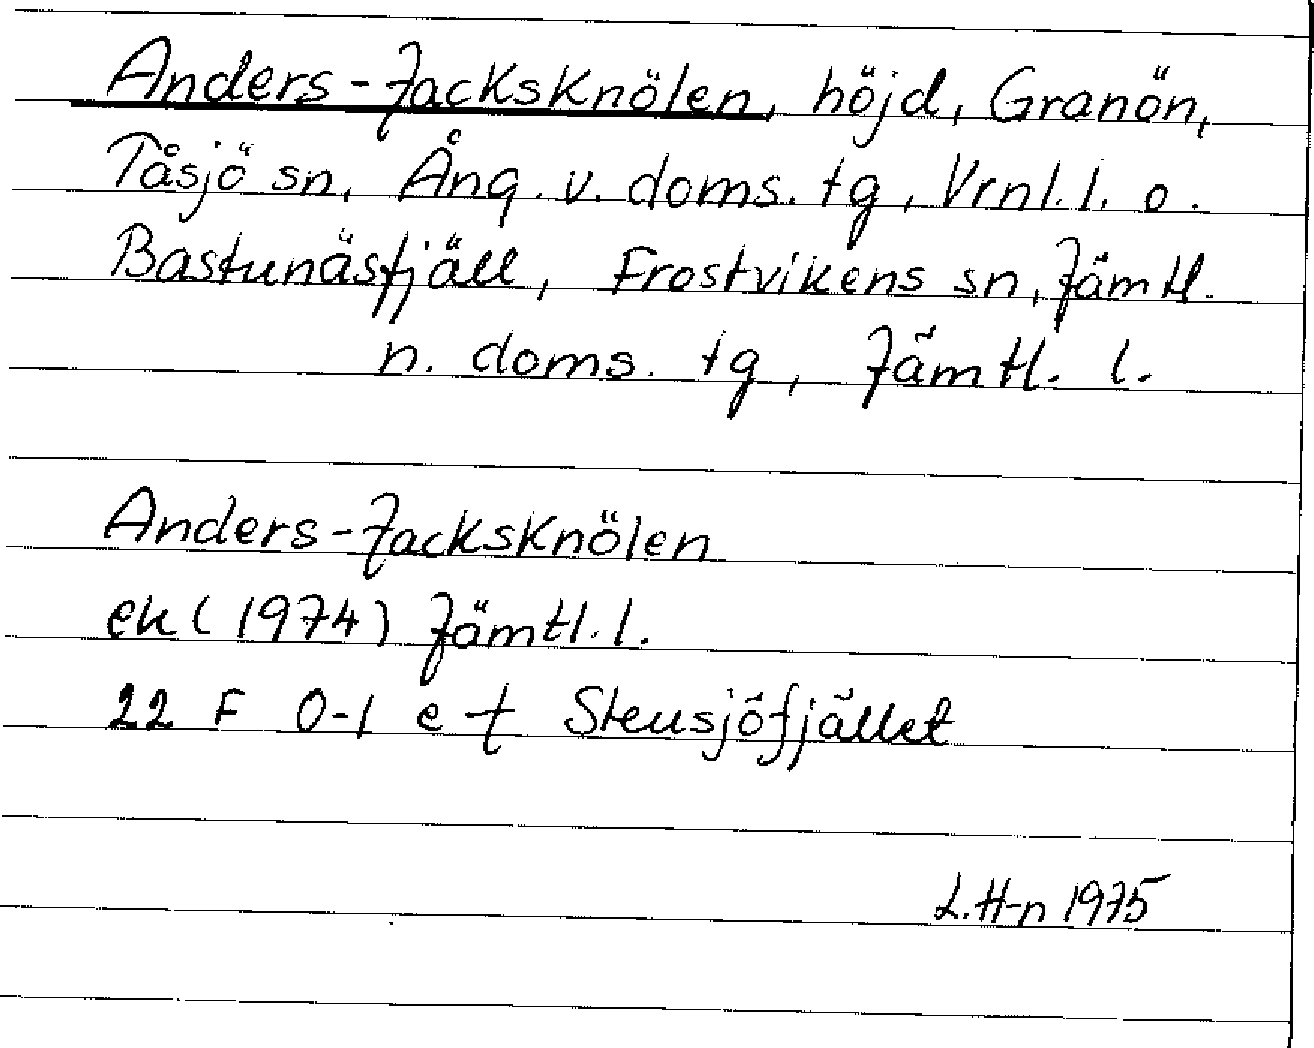 Anders-Jacksknölen, höjd, Granön,
Tåsjö sn, Ång. v. doms. tg, Vrnl. l. o.
Bastunäsfjäll, Frostvikens sn, Jämtl.
n. doms. tg, Jämtl. l.
Anders-Jacksknölen
ek (1974) Jämtl. l.
22 F 0-1 e-f Steusjöfjället
L. H-n 1975